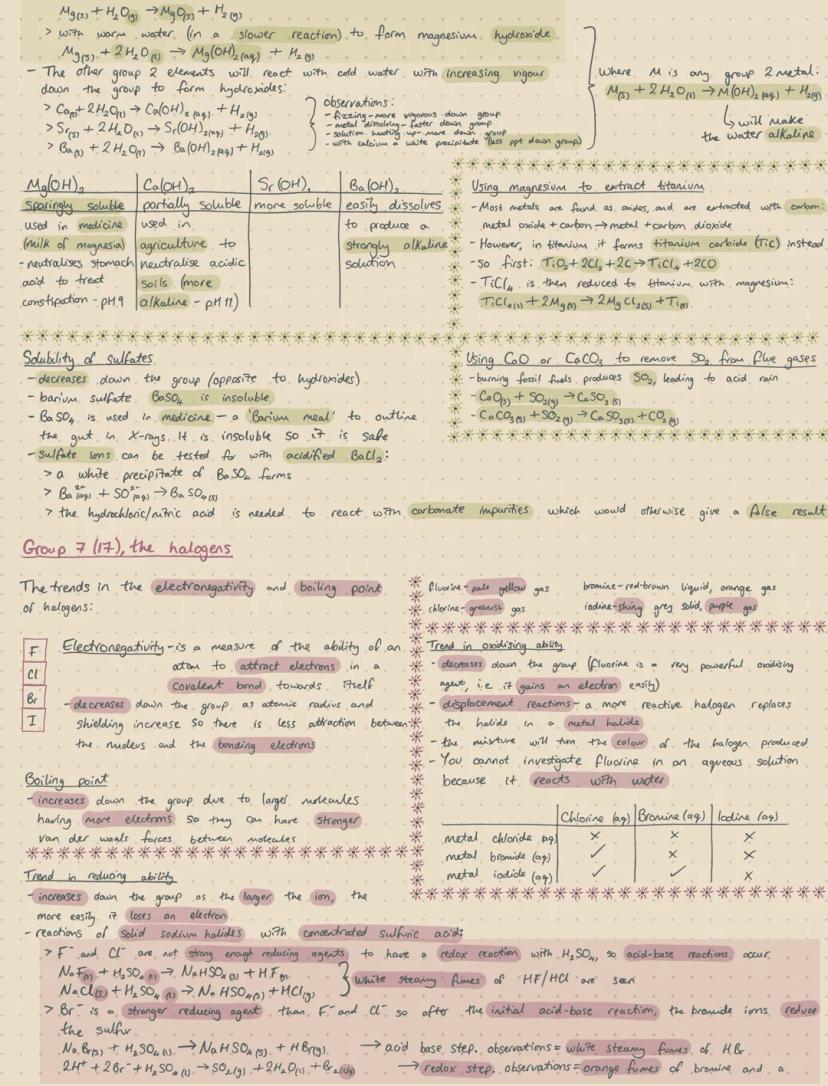 Mg(s) + H2O(g) → MgO(s) + H2(g)
> with warm water (in a slower reaction) to form magnesium hydroxide
Mg(s) + 2H2O(l) → Mg(OH)2(aq) + H2(g)
- The other group 2 elements will react with cold water with increasing vigour
down the group to form hydroxides:
> Ca(s) + 2H2O(l) → Ca(OH)2(aq) + H2(g)
> Sr(s) + 2H2O(l) → Sr(OH)2(aq) + H2(g)
> Ba(s) + 2H2O(l) → Ba(OH)2(aq) + H2(g)
observations:
- fizzing - more vigorous down group
- metal dissolving - faster down group
- solution heating up - more down group
- with calcium a white precipitate (less ppt down group)
where M is any group 2 metal:
M(s) + 2H2O(l) → M(OH)2(aq) + H2(g)
↳ will make
the water alkaline
Mg(OH)2 Ca(OH)2 Sr(OH)2 Ba(OH)2
sparingly soluble partially soluble more soluble easily dissolves
used in medicine used in to produce a
(milk of magnesia) agriculture to strongly alkaline
- neutralises stomach neutralise acidic solution
acid to treat soils (more
constipation - pH 9 alkaline - pH 11)
Using magnesium to extract titanium
- Most metals are found as oxides, and are extracted with carbon:
metal oxide + carbon → metal + carbon dioxide
- However, in titanium it forms titanium carbide (TiC) instead
- so first: TiO2 + 2Cl2 + 2C → TiCl4 + 2CO
- TiCl4 is then reduced to titanium with magnesium:
TiCl4(l) + 2Mg(s) → 2MgCl2(s) + Ti(s)
Solubility of sulfates
- decreases down the group (opposite to hydroxides)
- barium sulfate BaSO4 is insoluble
- BaSO4 is used in medicine - a 'Barium meal' to outline
the gut in X-rays. It is insoluble so it is safe
- sulfate ions can be tested for with acidified BaCl2:
> a white precipitate of BaSO4 forms
> Ba2+(aq) + SO2-(aq) → BaSO4(s)
> the hydrochloric/nitric acid is needed to react with carbonate impurities which would otherwise give a false result
Using CaO or CaCO3 to remove SO2 from flue gases
- burning fossil fuels produces SO2, leading to acid rain
- CaO(s) + SO2(g) → CaSO3(s)
- CaCO3(s) + SO2(g) → CaSO3(s) + CO2(g)
Group 7 (17), the halogens
The trends in the electronegativity and boiling point
of halogens:
F
Cl
Br
I
Electronegativity - is a measure of the ability of an
atom to attract electrons in a
covalent bond towards itself
- decreases down the group as atomic radius and
shielding increase so there is less attraction between
the nucleus and the bonding electrons
Boiling point
- increases down the group due to larger molecules
having more electrons so they can have stronger
van der waals forces between molecules
fluorine - pale yellow gas bromine - red-brown liquid, orange gas
chlorine - greenish gas iodine - shiny grey solid, purple gas
Trend in oxidising ability
- decreases down the group (fluorine is a very powerful oxidising
agent, i.e. it gains an electron easily)
- displacement reactions - a more reactive halogen replaces
the halide in a metal halide
- the mixture will turn the colour of the halogen produced
- You cannot investigate fluorine in an aqueous solution
because it reacts with water
Chlorine (aq) Bromine (aq) Iodine (aq)
metal chloride (aq) × × ×
metal bromide (aq) ✓ × ×
metal iodide (aq) ✓ ✓ ×
Trend in reducing ability
- increases down the group as the larger the ion, the
more easily it loses an electron
- reactions of solid sodium halides with concentrated sulfuric acid:
> F- and Cl- are not strong enough reducing agents to have a redox reaction with H2SO4, so acid-base reactions occur
NaF(s) + H2SO4(l) → NaHSO4(s) + HF(g)
NaCl(s) + H2SO4(l) → NaHSO4(s) + HCl(g)
white steamy fumes of HF/HCl are seen
> Br- is a stronger reducing agent than F- and Cl- so after the initial acid-base reaction, the bromide ions reduce
the sulfur.
NaBr(s) + H2SO4(l) → NaHSO4(s) + HBr(g) → acid base step. observations = white steamy fumes of HBr
2H+ + 2Br- + H2SO4(l) → SO2(g) + 2H2O(l) + Br2(g) → redox step. observations = orange fumes of bromine and a